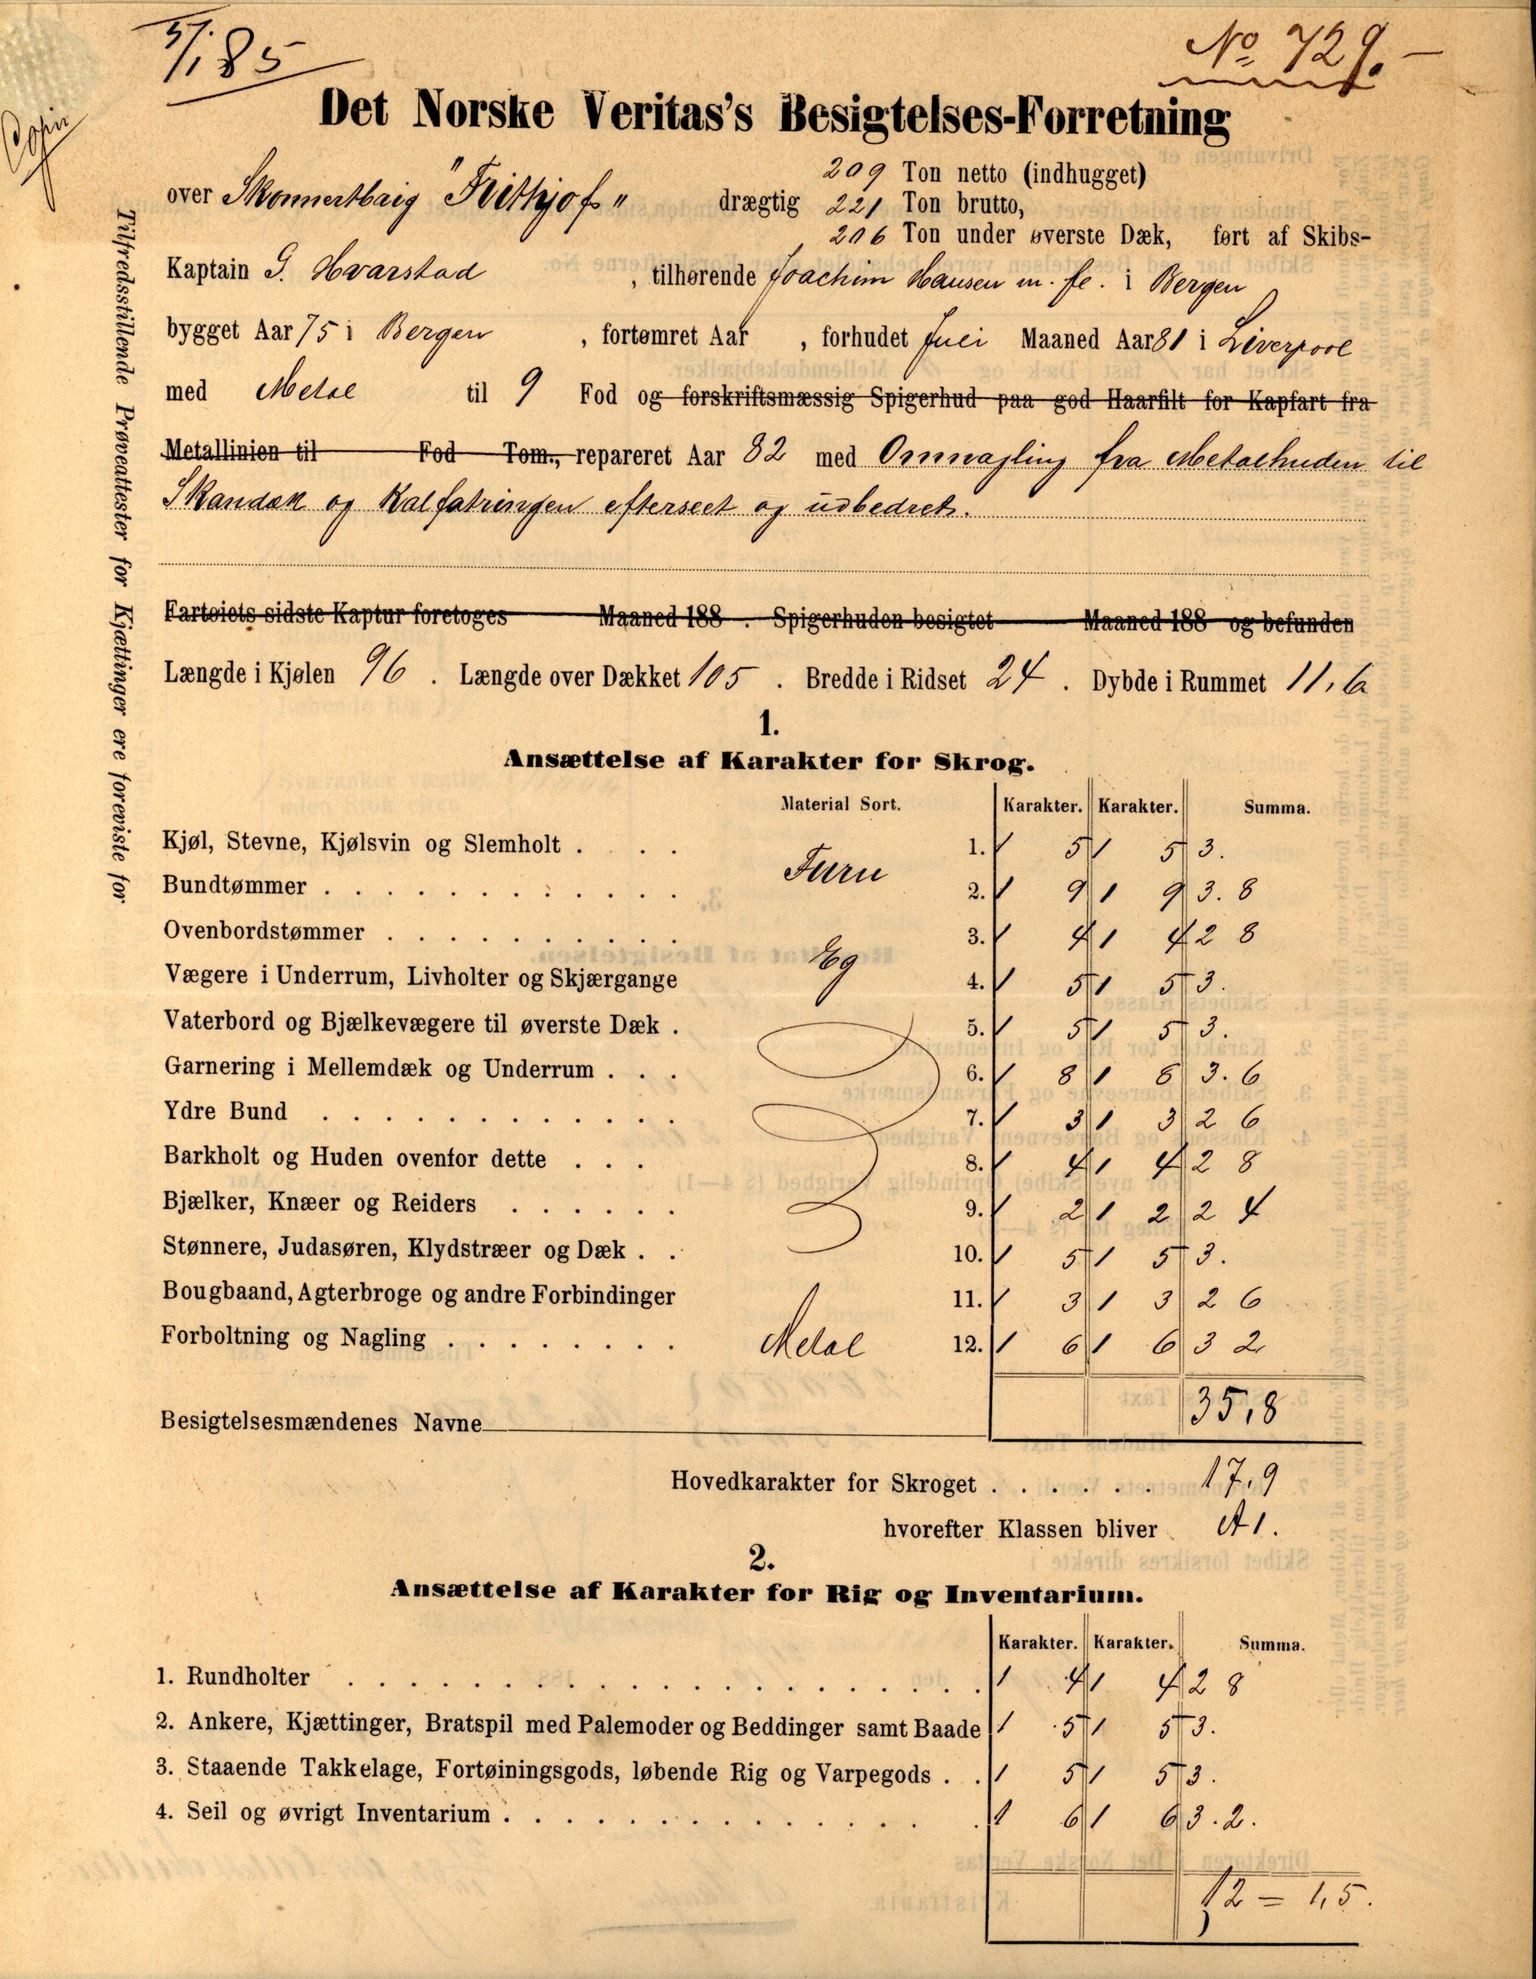 5/1 85
No 729.
Copi
Det Norske Veritas's Besigtelses-Forretning
209 Ton netto (indhugget)
over Skonnertbrig "Frithjof" drægtig 221 Ton brutto,
206 Ton under øverste Dæk, ført af Skibs-
Kaptain G. Hvarstad, tilhørende Joachim Hansen m. fl. i Bergen
bygget Aar 75 i Bergen, fortømret Aar , forhudet Juli Maaned Aar 81 i Liverpool
med Metal til 9 Fod og forskriftsmæssig Spigerhud paa god Haarfilt for Kapfart fra
Metallinien til Fod Tom., repareret Aar 82 med Omnagling fra Metalhuden til
Skandæk og Kalfatringen efterseet og udbedret.
Fartøiets sidste Kaptur foretoges Maaned 188 . Spigerhuden besigtet Maaned 188 og befunden
Længde i Kjølen 96 . Længde over Dækket 105 . Bredde i Ridset 24 . Dybde i Rummet 11,6
Tilfredsstillende Prøveattester for Kjættinger ere foreviste for
1.
Ansættelse af Karakter for Skrog.
Material Sort. Karakter. Karakter. Summa.
Kjøl, Stevne, Kjølsvin og Slemholt . . . . Furu 1. 1 5 1 5 3.
Bundtømmer . . . . . . . . . . . . 2. 1 9 1 9 3.8
Ovenbordstømmer . . . . . . . . . . Eg 3. 1 4 1 4 2 8
Vægere i Underrum, Livholter og Skjærgange 4. 1 5 1 5 3.
Vaterbord og Bjælkevægere til øverste Dæk . 5. 1 5 1 5 3.
Garnering i Mellemdæk og Underrum . . . 6. 1 8 1 8 3.6
Ydre Bund . . . . . . . . . . . . 7. 1 3 1 3 2 6
Barkholt og Huden ovenfor dette . . . 8. 1 4 1 4 2 8
Bjælker, Knæer og Reiders . . . . . . 9. 1 2 1 2 2 4
Stønnere, Judasøren, Klydstræer og Dæk . . 10. 1 5 1 5 3.
Bougbaand, Agterbroge og andre Forbindinger 11. 1 3 1 3 2 6
Forboltning og Nagling . . . . . . . . Metal 12. 1 6 1 6 3 2
35,8
Besigtelsesmændenes Navne
Hovedkarakter for Skroget . . . . . . 17,9
hvorefter Klassen bliver A1.
2.
Ansættelse af Karakter for Rig og Inventarium.
Karakter. Karakter. Summa.
1. Rundholter . . . . . . . . . . . . . . . . . . 1 4 1 4 2 8
2. Ankere, Kjættinger, Bratspil med Palemoder og Beddinger samt Baade 1 5 1 5 3.
3. Staaende Takkelage, Fortøiningsgods, løbende Rig og Varpegods . . 1 5 1 5 3.
4. Seil og øvrigt Inventarium . . . . . . . . . . . . . 1 6 1 6 3.2.
12 = 1,5.